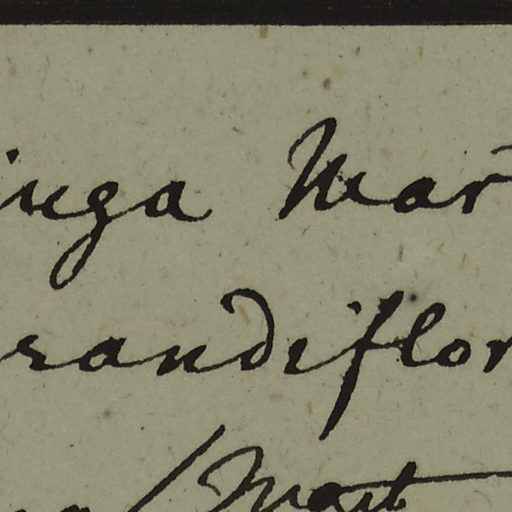 inga Mar
randiflor
/ Mart